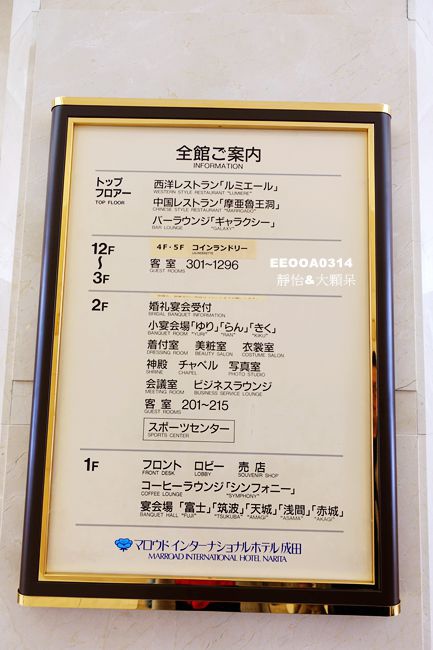 全館ご案内
INFORMATION
トップ
フロアー
TOP FLOOR
西洋レストラン「ルミエール」
WESTERN STYLE RESTAURANT "LUMIERE"
中国レストラン「摩亜魯王洞」
CHINESE STYLE RESTAURANT "MARROADO"
バーラウンジ「ギャラクシー」
BAR LOUNGE "GALAXY"
12F
~
3F
4F・5F コインランドリー
LAUNDERETTE
客室 301~1296
GUEST ROOMS
EEOOA0314
靜怡&大顆呆
2F
婚礼宴会受付
BRIDAL BANQUET INFORMATION
小宴会場「ゆり」「らん」「きく」
BANQUET ROOM "YURI" "RAN" "KIKU"
着付室 美粧室 衣裳室
DRESSING ROOM BEAUTY SALON COSTUME SALON
神殿 チャペル 写真室
SHRINE CHAPEL PHOTO STUDIO
会議室 ビジネスラウンジ
MEETING ROOM BUSINESS SERVICE LOUNGE
客室 201~215
GUEST ROOMS
スポーツセンター
SPORTS CENTER
1F
フロント ロビー 売店
FRONT DESK LOBBY SOUVENIR SHOP
コーヒーラウンジ「シンフォニー」
COFFEE LOUNGE "SYMPHONY"
宴会場「富士」「筑波」「天城」「浅間」「赤城」
BANQUET HALL "FUJI" "TSUKUBA" "AMAGI" "ASAMA" "AKAGI"
マロウド インターナショナルホテル 成田
MARROAD INTERNATIONAL HOTEL NARITA